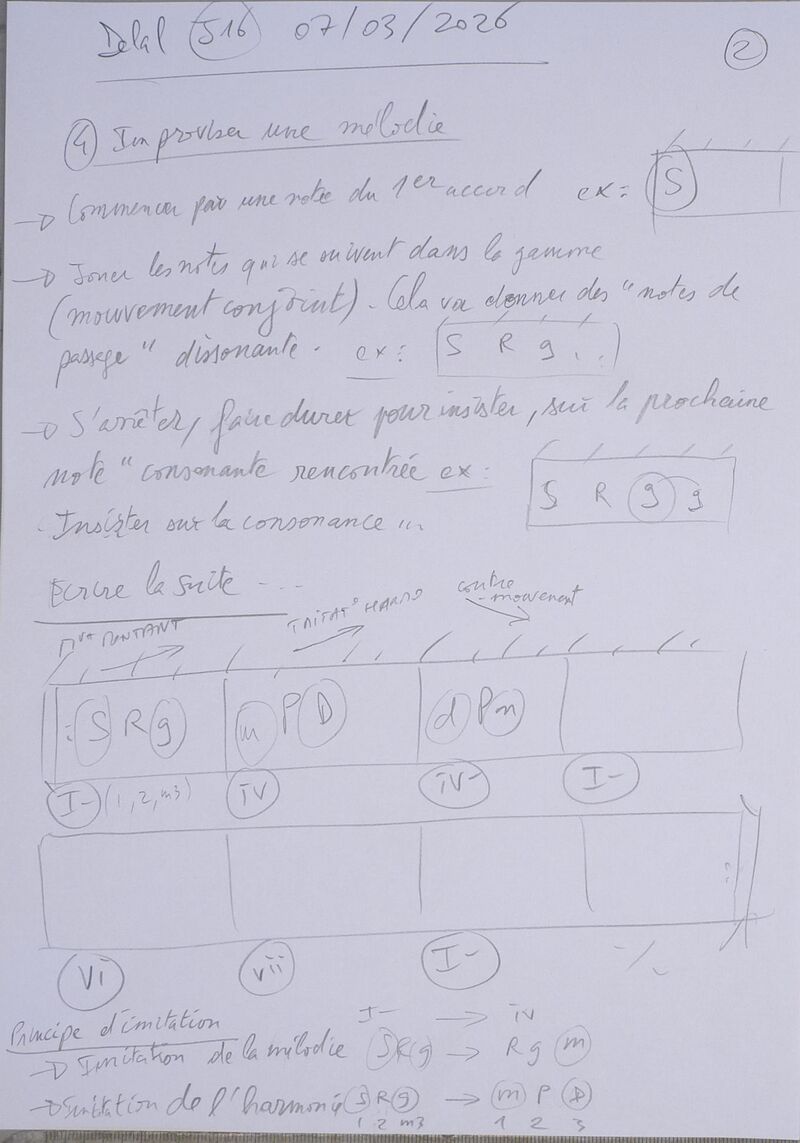 Delal J16 07/03/2026
2
4 Improviser une mélodie
→ Commencer par une note du 1er accord ex: S
→ Jouer les notes qui se suivent dans la gamme
(mouvement conjoint). Cela va donner des "notes de
passage" dissonante. ex: S R g ...
→ S'arrêter, faire durer pour insister, sur la prochaine
note "consonante rencontrée ex: S R g g
- Insister sur la consonance ...
Ecrire la suite ...
Mvt MONTANT IMITAT° HARMO contre-mouvement
: S R g m P D d P m
I- (1, 2, m3) iv iv- I-
:
vi vii I- ٪
Principe d'imitation I- → iv
→ Imitation de la mélodie S R g → R g m
→ Imitation de l'harmonie S R g → m P D
1 2 m3 1 2 3